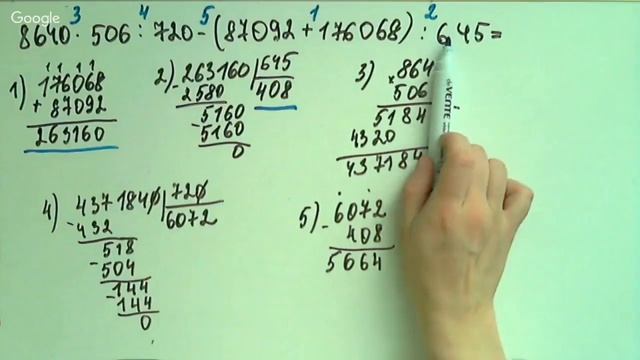 Google
3 4 5 1 2
8640 · 506 : 720 - (87092 + 176068) : 645 =
1) 176068
+ 87092
263160
2) 263160 | 645
- 2580 | 408
5160
- 5160
0
3) 864
× 506
5184
4320
437184
4) 4371840 | 720
- 432 | 6072
518
- 504
144
- 144
0
5) 6072
- 408
5664
deVENTE